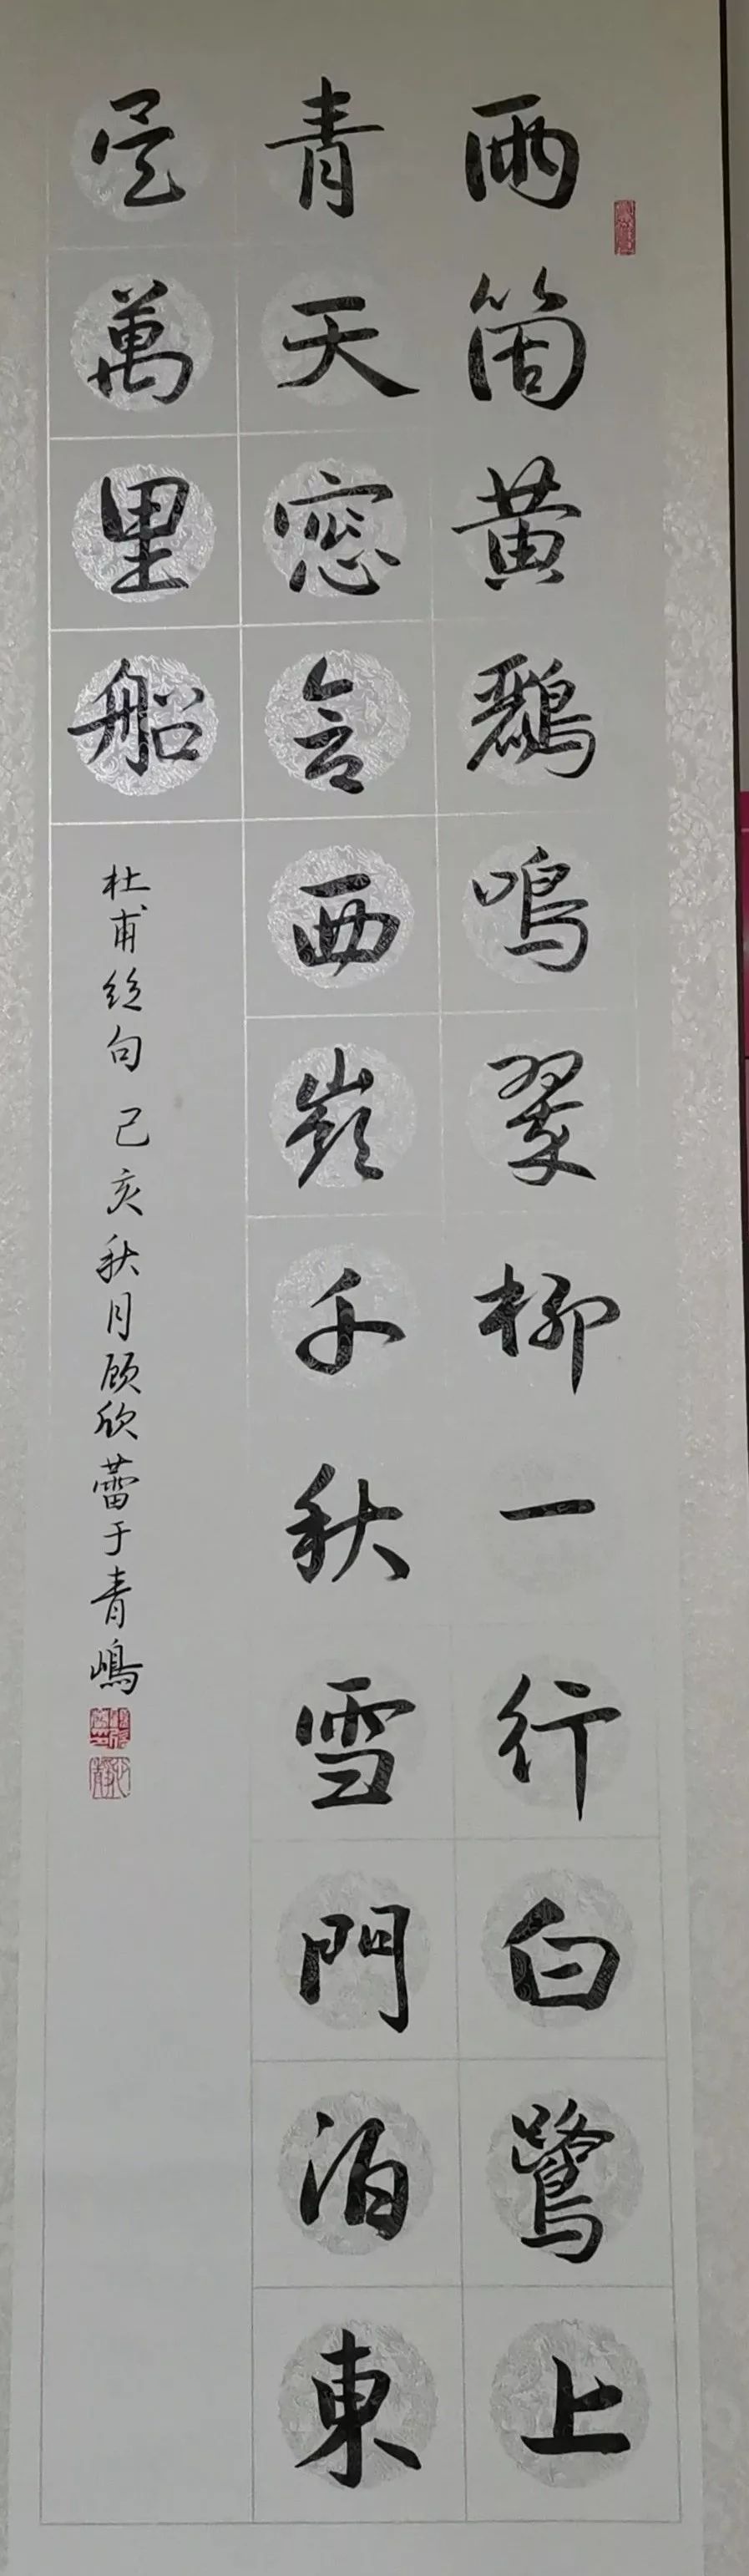 兩箇黄鸝鳴翠柳一行白鷺上
青天窓含西嶺千秋雪門泊東
吴萬里船
杜甫絶句 己亥秋月顾欣蕾于青嶋